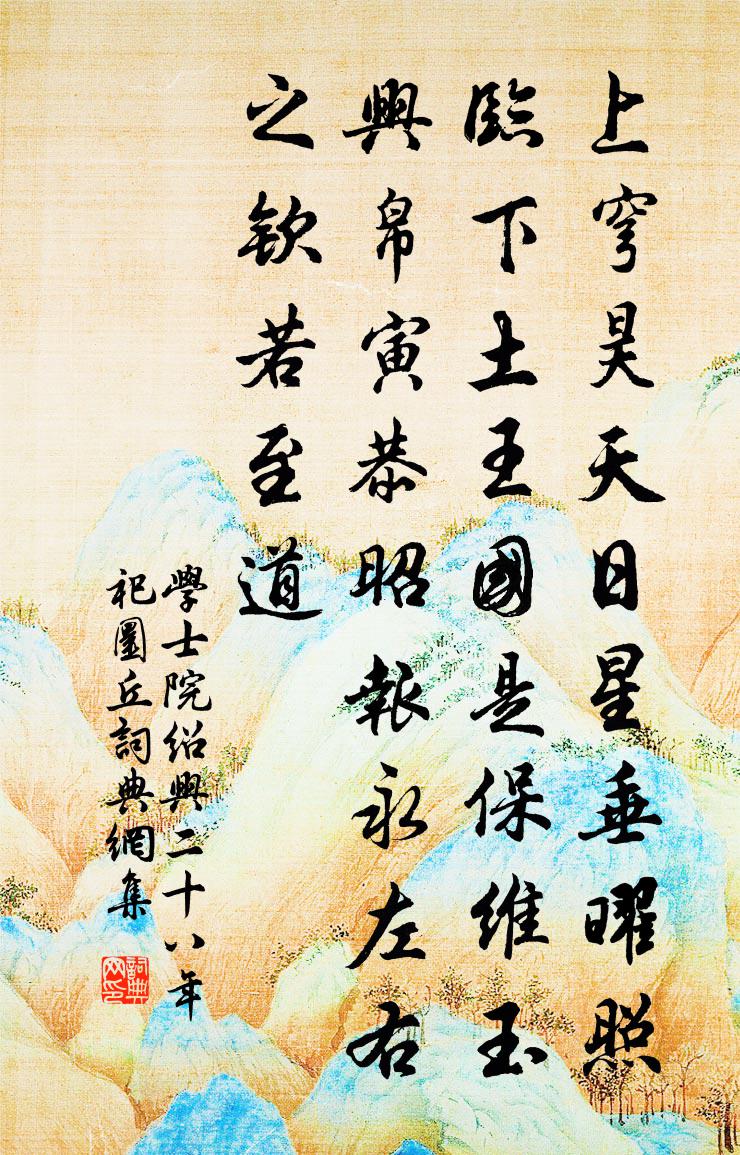 上穹昊天日星垂曜照
臨下土王國是保維玉
與帛寅恭昭報永左右
之欽若至道
學士院紹興二十八年
祀圜丘詞典網集
詞典網印